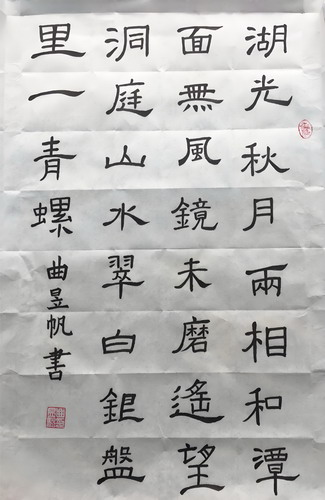 湖光秋月兩相和潭
面無風鏡未磨遙望
洞庭山水翠白銀盤
里一青螺曲昱帆書